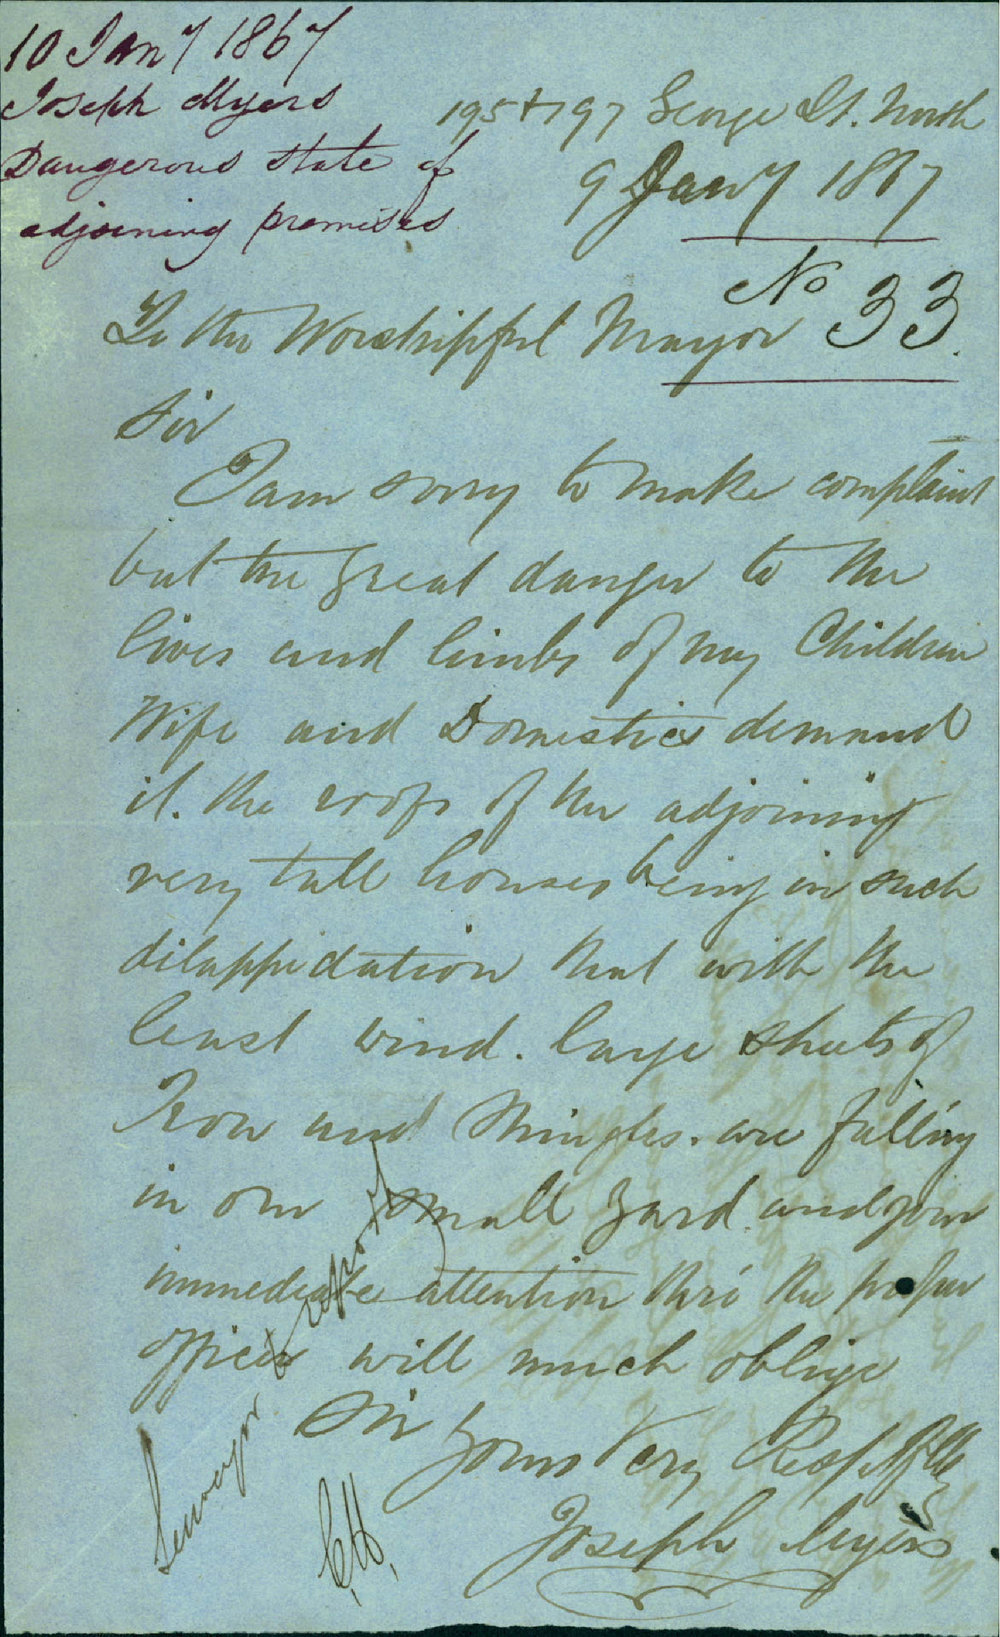 10 Jany 1867
Joseph Myers
Dangerous state of
adjoining premises
195 & 197 George St. North
9 Jany 1867
No 33
To the Worshipful Mayor
Sir
I am sorry to make complaint
but the great danger to the
lives and limbs of my Children
Wife and Domestics demand
it. the roofs of the adjoining
very tall houses being in such
dilappidation that with the
least wind. large sheets of
Iron and Shingles. are falling
in our small yard. and your
immediate attention thro the proper
officer will much oblige
Sir
Yours Very Respectfully
Joseph Myers
Surveyor to report